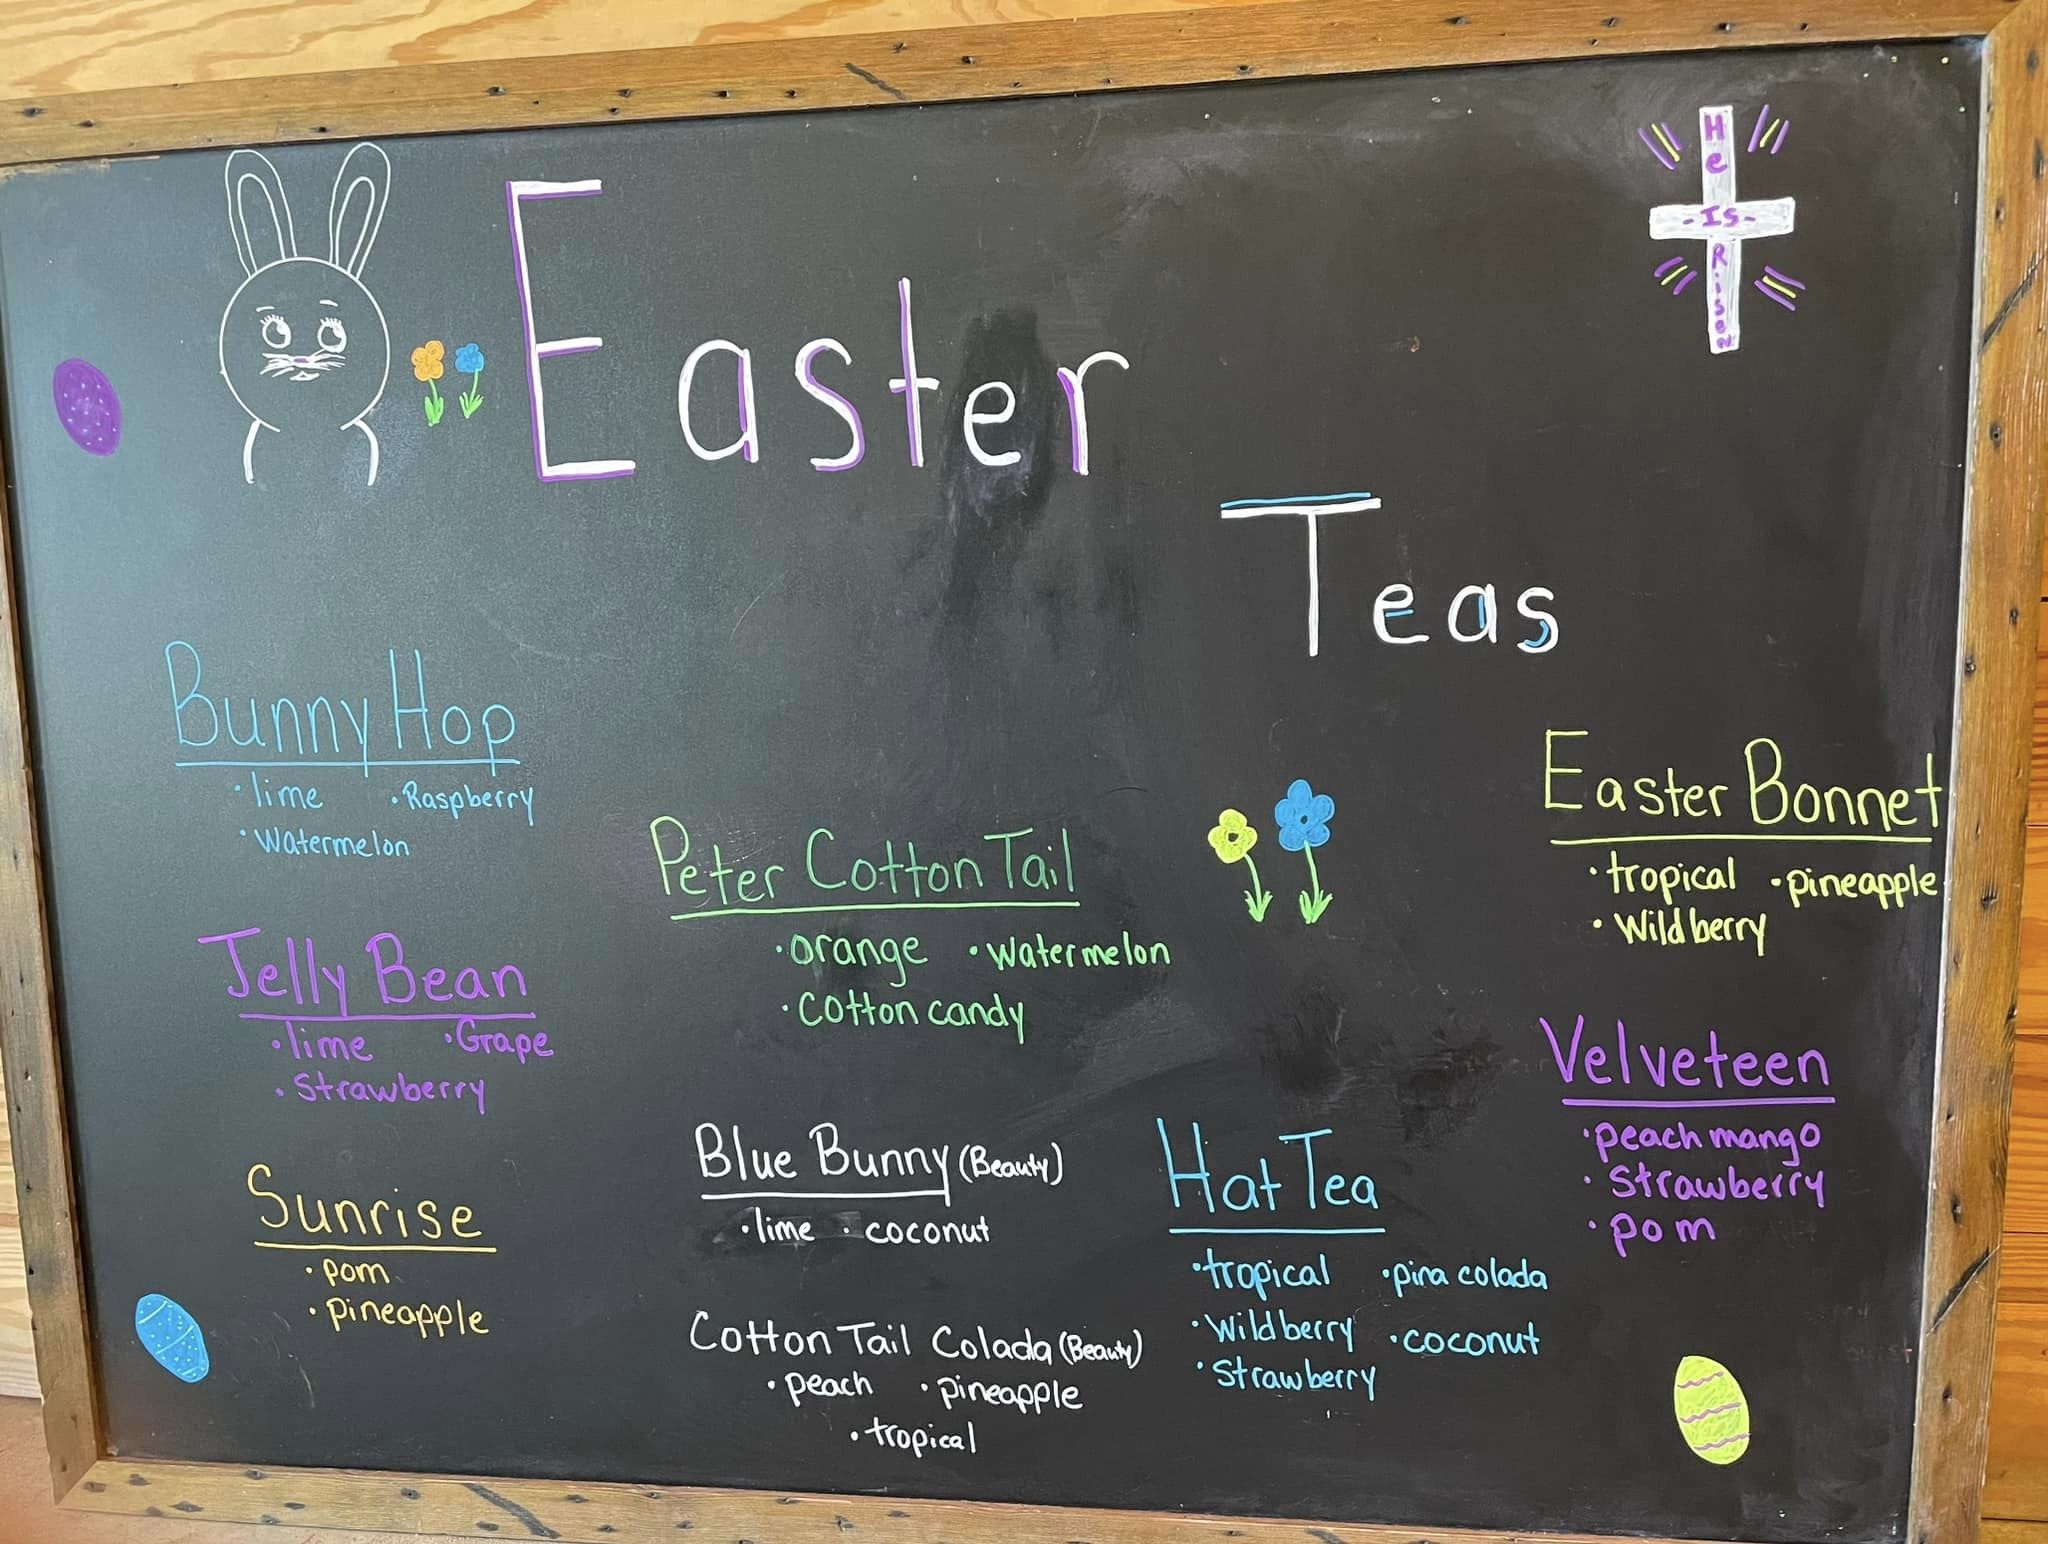 He
-Is-
Risen
Easter
Teas
Bunny Hop
• lime • Raspberry
• Watermelon
Jelly Bean
• lime • Grape
• Strawberry
Sunrise
• pom
• pineapple
Peter Cotton Tail
• orange • watermelon
• Cotton candy
Blue Bunny (Beauty)
• lime • coconut
Cotton Tail Colada (Beauty)
• peach • pineapple
• tropical
Hat Tea
• tropical • pina colada
• Wildberry • coconut
• Strawberry
Easter Bonnet
• tropical • pineapple
• Wildberry
Velveteen
• peach mango
• Strawberry
• pom